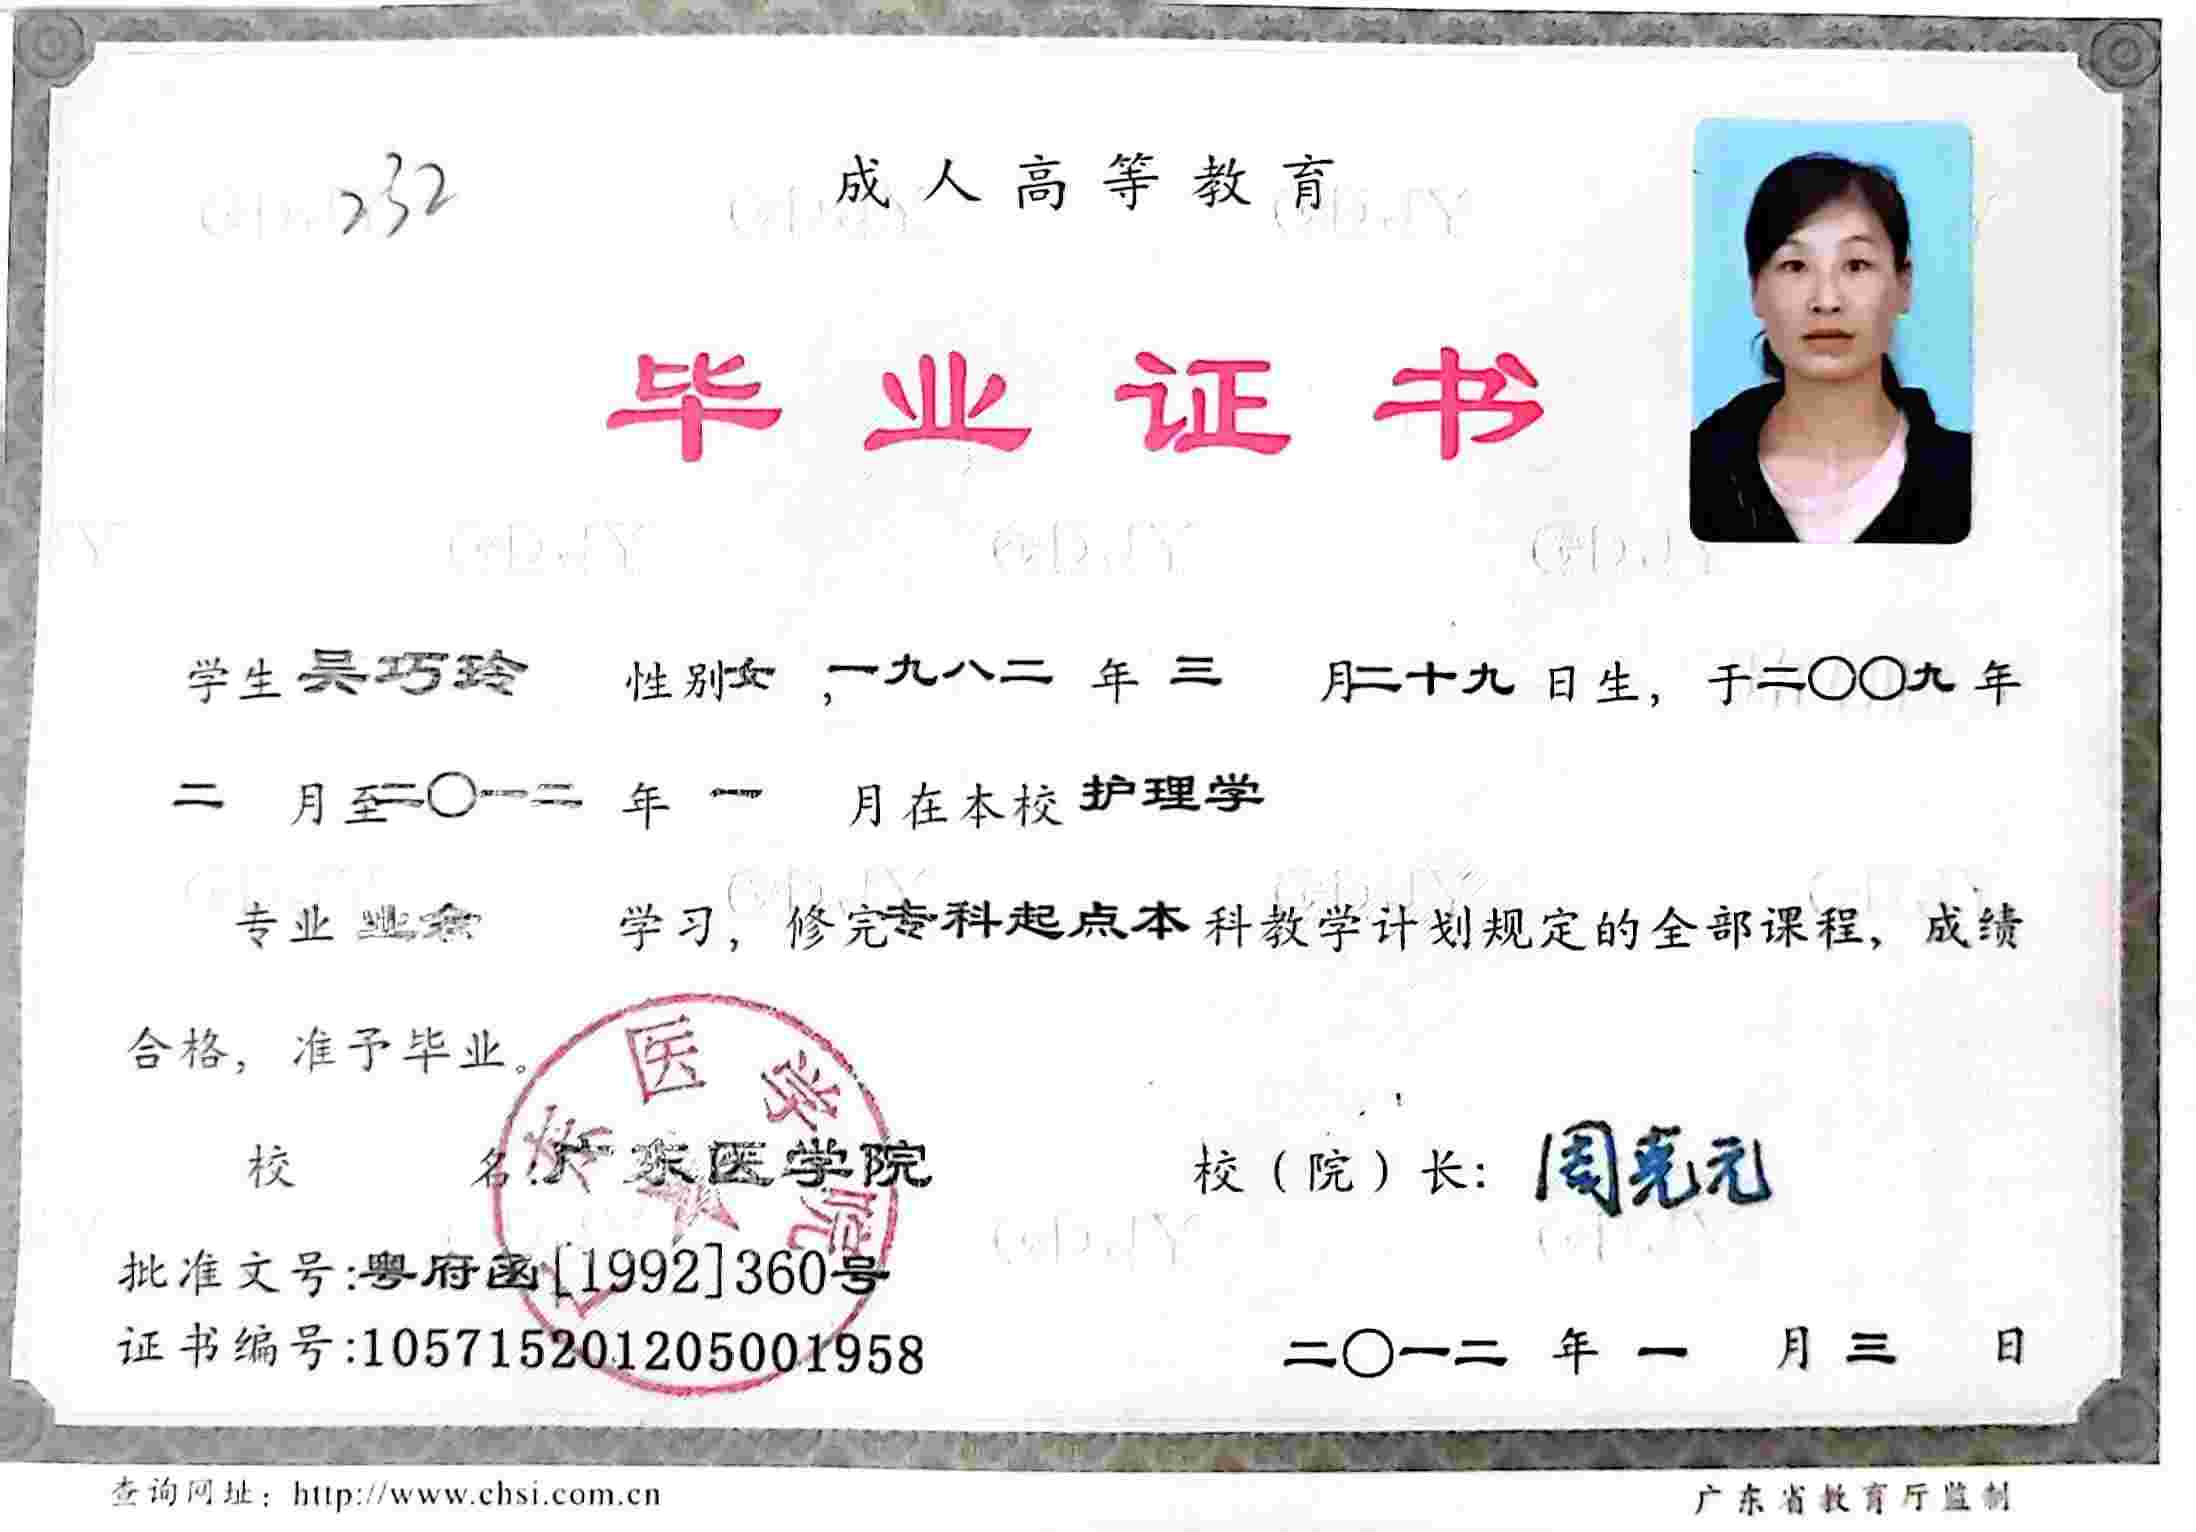 232
成人高等教育
毕业证书
学生 吴巧玲 性别 女 ,一九八二 年 三 月二十九 日生，于二〇〇九 年
二 月至二〇一二 年 一 月在本校 护理学
专业 业余 学习，修完专科起点本 科教学计划规定的全部课程，成绩
合格，准予毕业。
校 名:广东医学院
校（院）长: 周克元
批准文号:粤府函[1992]360号
证书编号:105715201205001958
二〇一二 年 一 月 三 日
查询网址：http://www.chsi.com.cn
广东省教育厅监制